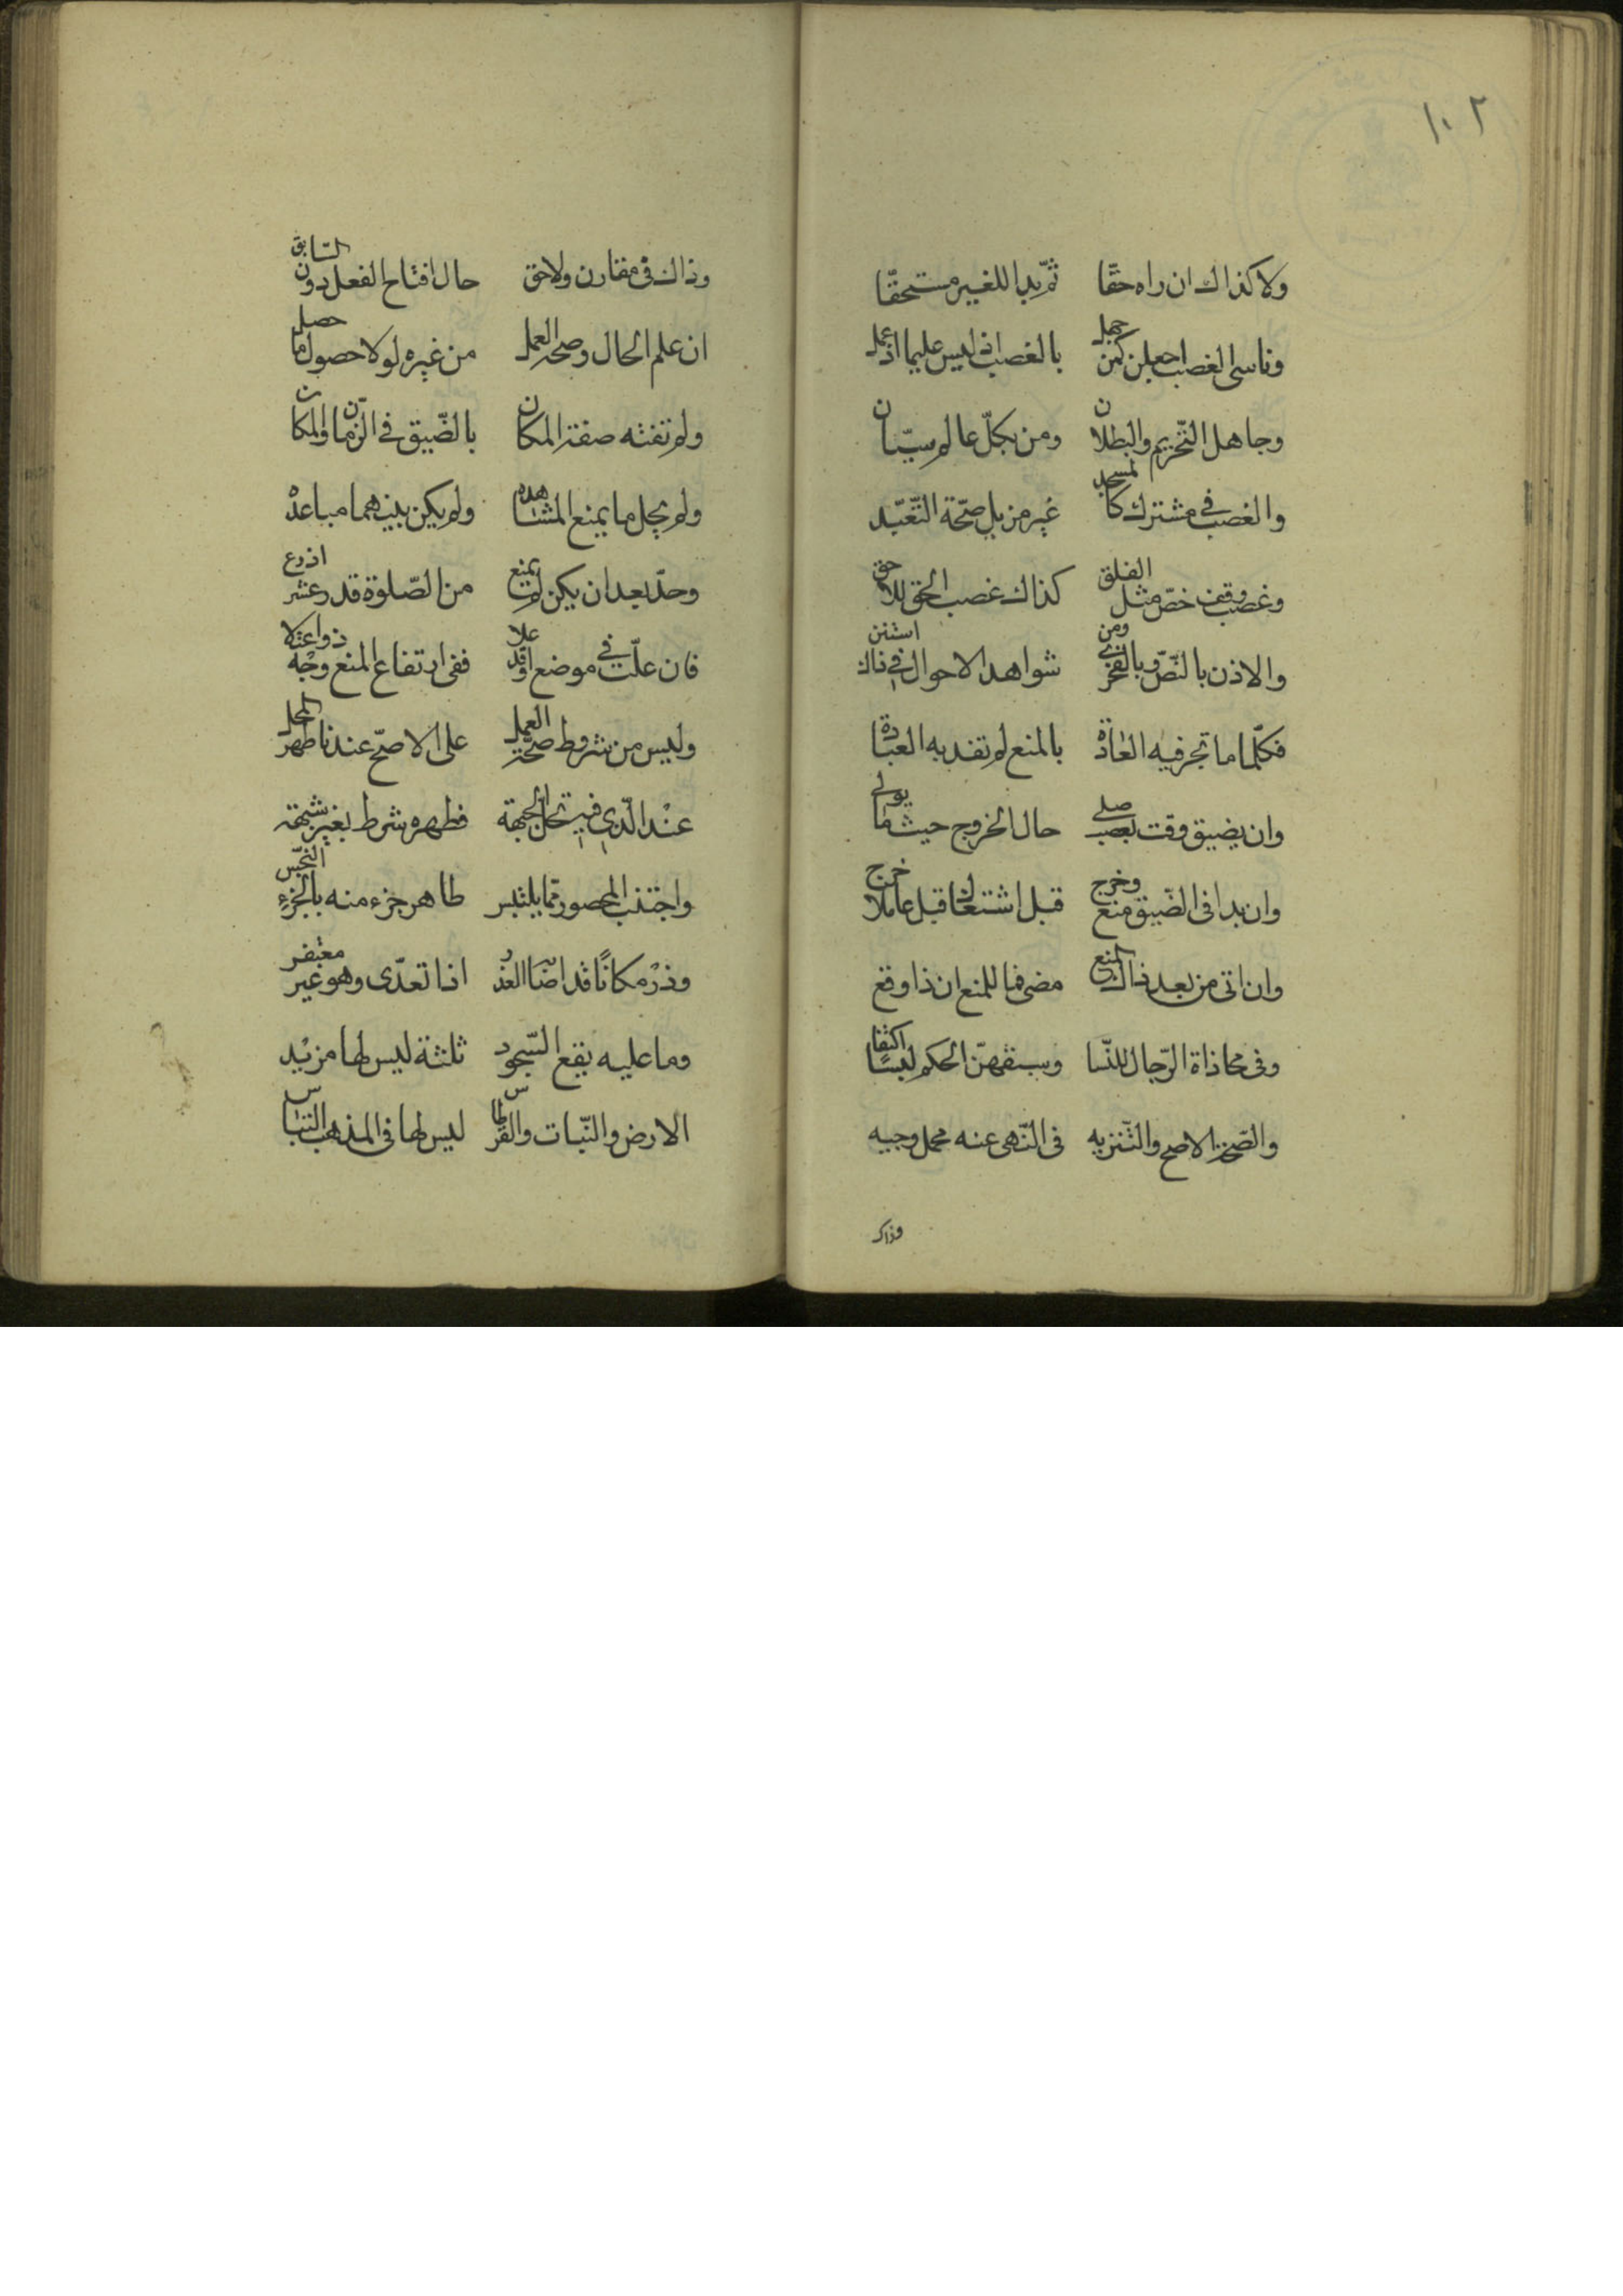 ١٠٢
ولا كذاك ان راه حقّا ثمّ بدا للغير مستحقّا
وناسى الغصب اجعلن كمن جهل بالغصب اذ ليس عليما اذ عمل
وجاهل التّحريم والبطلان ومن بكلّ عالم سيّان
والغصب فى مشترك كالمسجد غير مزيل صحّة التّعبّد
وغصب وقف خصّ مثل الطلق كذاك غصب الحق للاحق
والاذن بالنّصّ وبالفحوى ومن شواهد الاحوال فى ذاك استبن
فكلّما ما تجر فيه العادة بالمنع لم تفد به العبادة
وان يضيق وقت بغصب صلى حال الخروج حيثما يولى
وان بدا فى الضّيق منع وخرج قبل اشتغال قبل عاملا خرج
وان اتى من بعد ذاك المنع مضى فما للمنع ان ذا وقع
وفى محاذاة الرّجال للنّسا وسبقهنّ الحكم لبسًا اكتفا
والصّحّة الاصح والتّنزيه فى النّهى عنه محمل وجيه
وذاك
وذاك فى مقارن ولاحق حال افتتاح الفعل دون السّابق
ان علم الحال وصحّة العمل من غيره لولا حصول ما حصل
ولم تفته صفة المكان بالضّيق فى الزّمان والمكان
ولم يحل ما يمنع المشاهده ولم يكن بينهما مباعدة
وحدّ بعد ان يكن لم يمنع من الصّلوة قدر عشر اذرع
فان علت فى موضع او قد علا ففى ارتفاع المنع وجه ذو اعتلا
وليس من شروط صحّة العمل على الاصحّ عندنا طهر المحل
عند الّذى فيه تحلّ الجبهة فطهره شرط بغير شبهة
واجتنب المحصور ممّا يلتبس طاهر جزء منه بالجزء النّجس
وذر مكانًا قد اصاب العذر اذا تعدّى وهو غير مغتفر
وما عليه يقع السّجود ثلثة ليس لها مزيد
الارض والنّبات والقرطاس ليس لها فى المذهب التباس